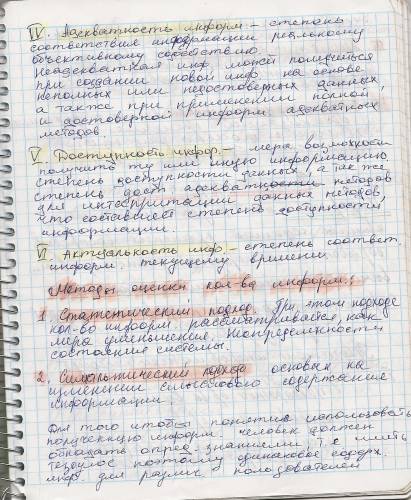 IV. Адекватность информ – степень
соответствия информации реальному
объективному
Неадекватная инф. может получиться
при создании новой инф. на основе
неполных или недостоверных данных,
а также при применении полной
и достоверной информ адекватных
методов.
V. Доступность информ. – мера возможности
получить ту или иную информацию
степень доступности данных, а так же
степень дост. адекватности методов
для интерпритации данных методов,
что составляет степень доступности
информации.
VI. Актуальность инф. – степень соответ.
информ. текущему времени
Методы оценки кол-ва информ.:
1. Статистический подход. При этом подходе
кол-во информ рассматривается, как
мера уменьшения неопределенности
состояния системы.
2. Семантический подход основан на
изменении смыслового содержание
информации.
Для того чтобы понятие использовать
полученную информ. человек должен
обладать опред. знаниями, т.е. иметь
тезаулос поэтому одинаковое содерж.
инф. для различ. пользователей